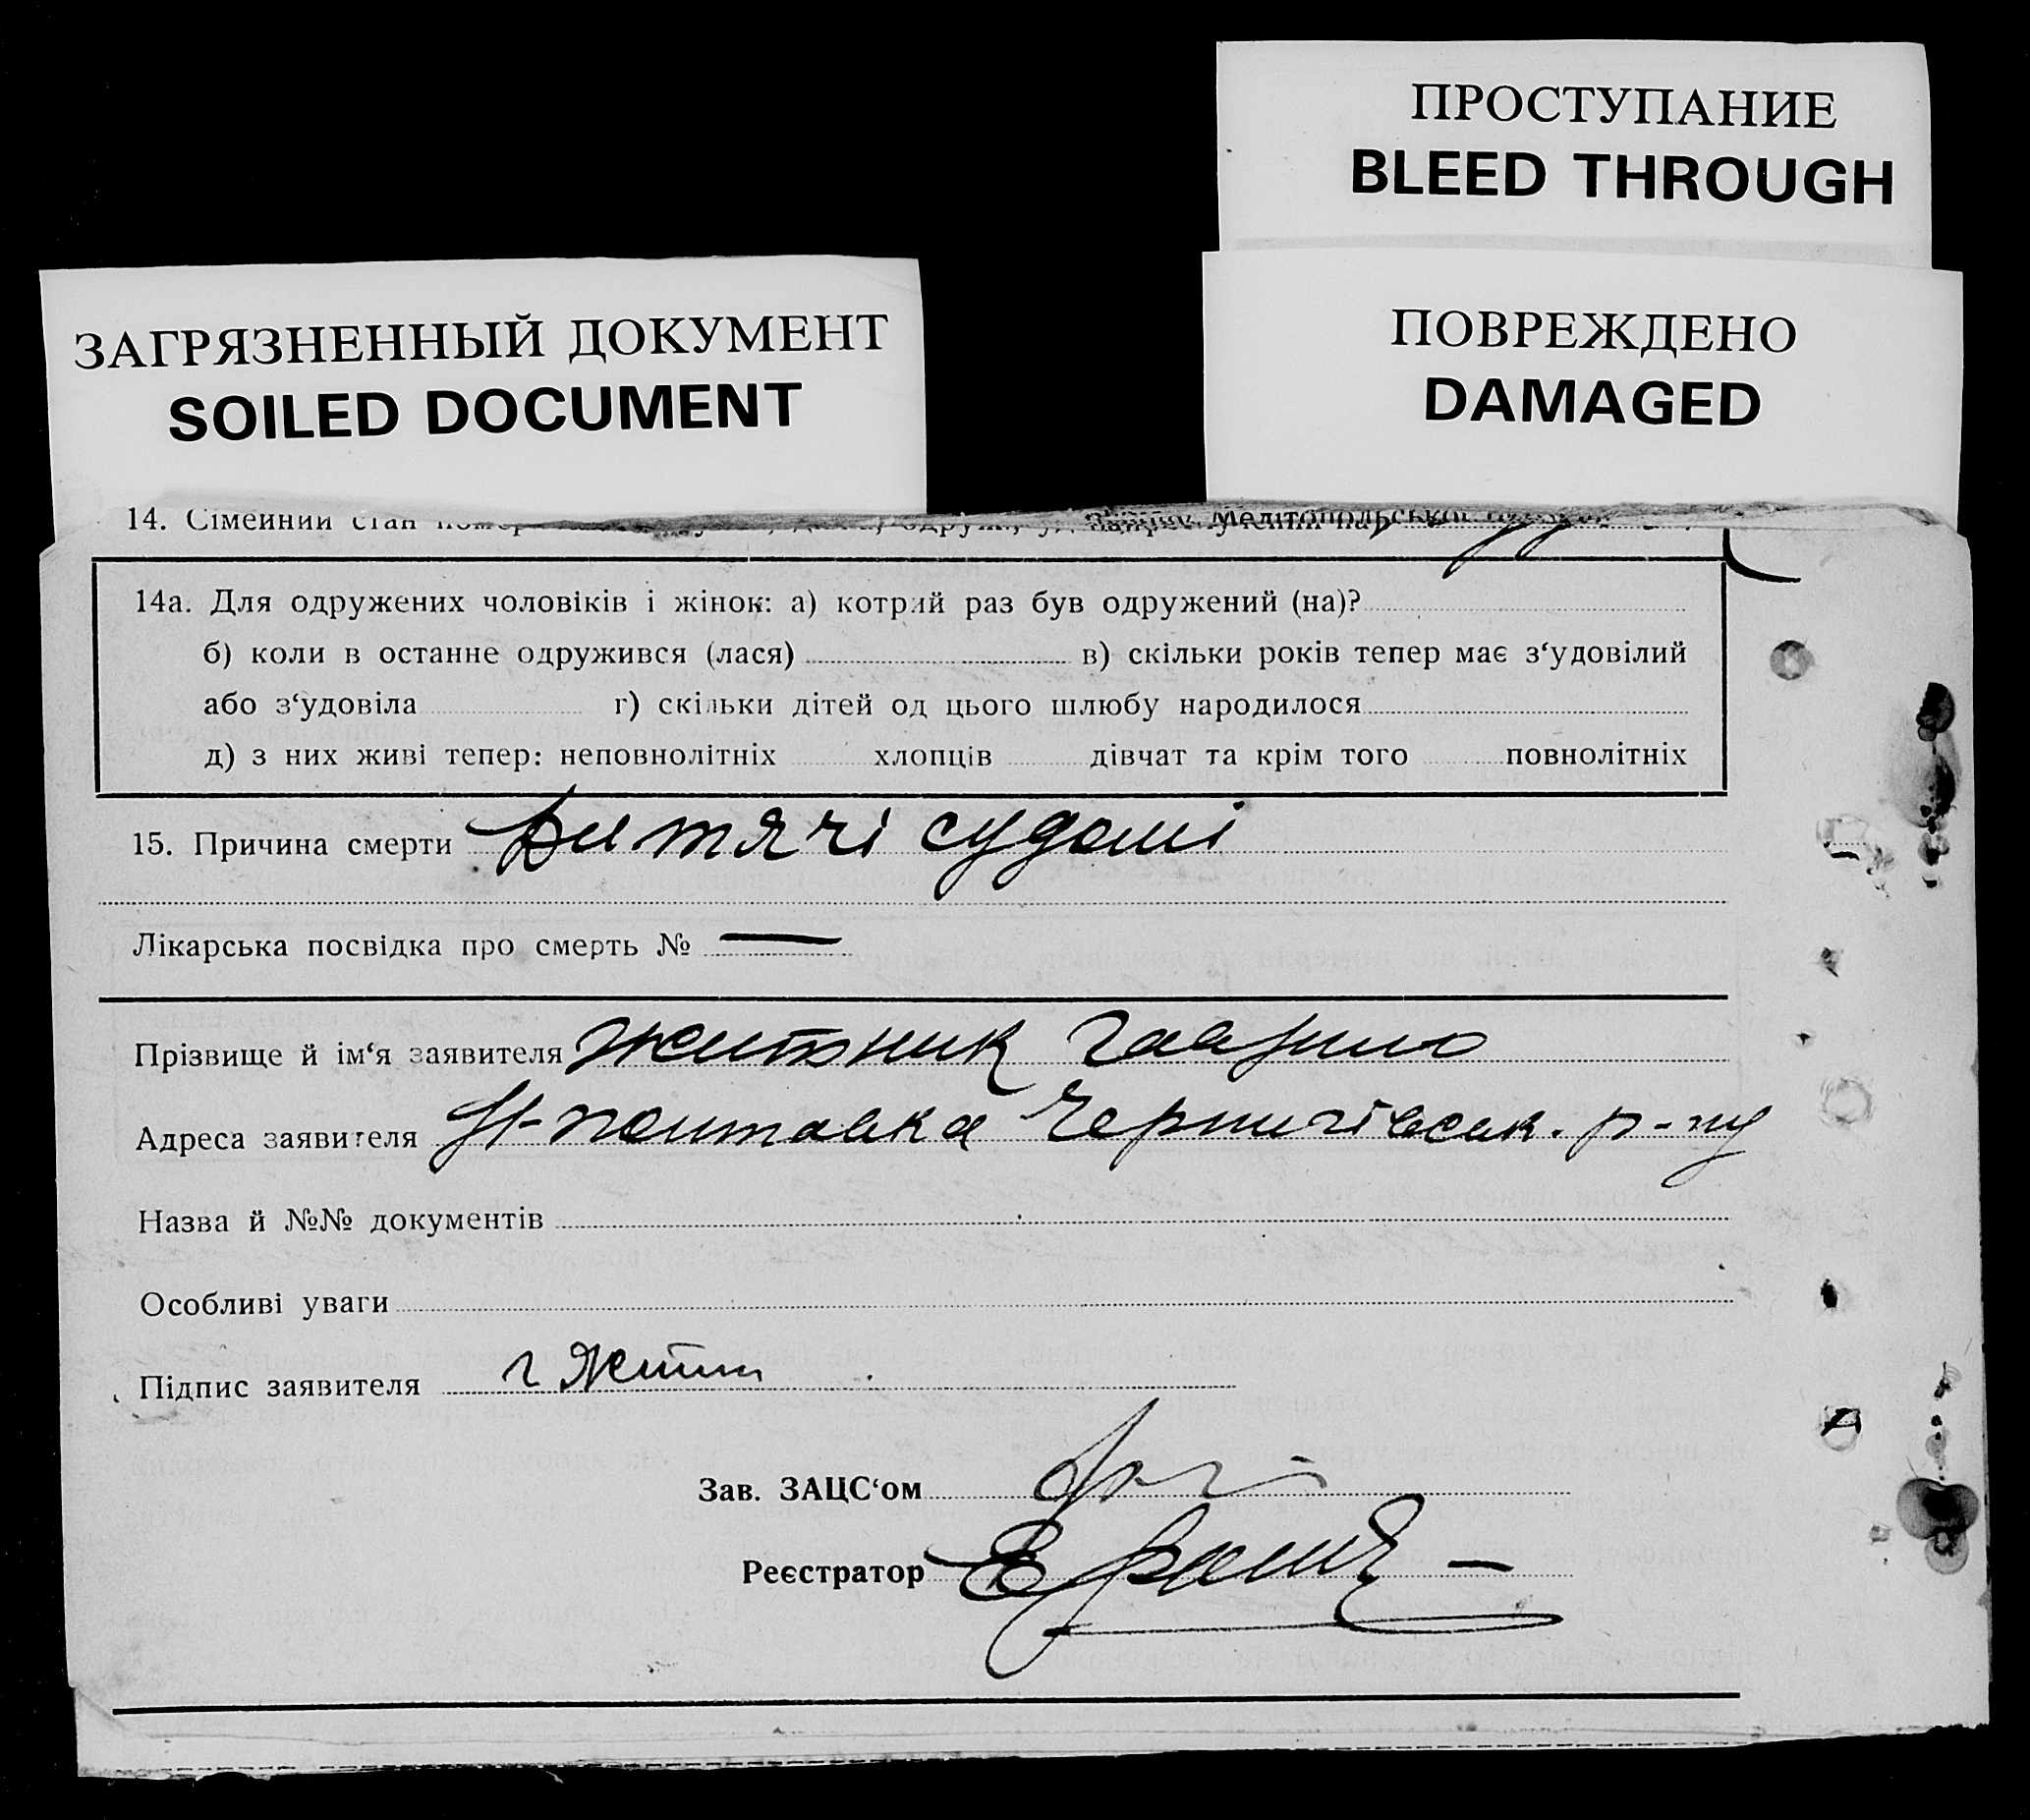 ПРОСТУПАНИЕ
BLEED THROUGH
ЗАГРЯЗНЕННЫЙ ДОКУМЕНТ
SOILED DOCUMENT
ПОВРЕЖДЕНО
DAMAGED
14. Сімейний стан
14а. Для одружених чоловіків і жінок: а) котрий раз був одружений (на)?
б) коли в останне одружився (лася) в) скільки років тепер має з‘удовілий
або з‘удовіла г) скільки дітей од цього шлюбу народилося
д) з них живі тепер: неповнолітніх хлопців дівчат та крім того повнолітніх
15. Причина смерти Дитячі судомі
Лікарська посвідка про смерть № —
Прізвище й ім‘я заявителя Житник Гаврило
Адреса заявителя Н-полтавка Чернигівськ. р-ну
Назва й №№ документів
Особливі уваги
Підпис заявителя Г Житн
Зав. ЗАЦС‘ом
Реєстратор